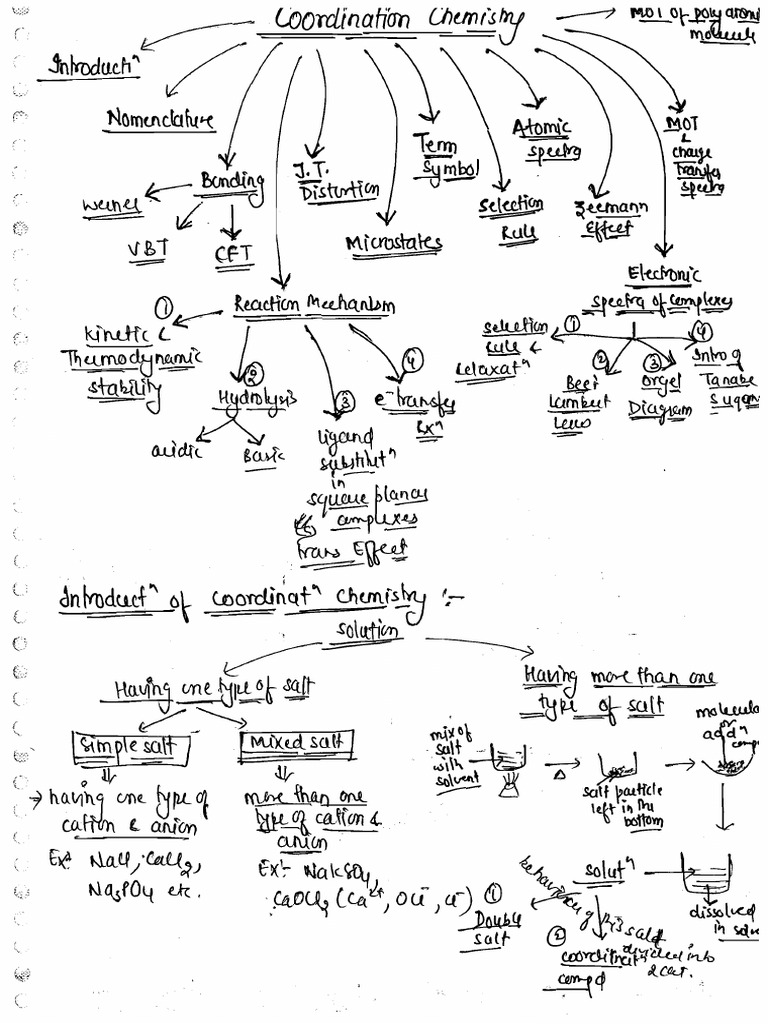 Coordination Chemistry
MOT of poly atomic
molecule
Introductiⁿ
Nomenclature
Bonding
Werner
VBT
CFT
J.T.
Distortion
Microstates
Term
Symbol
Selection
Rule
Atomic
spectra
Zeemann
Effect
MOT
&
charge
Transfer
spectra
Electronic
spectra of complexes
① Selection
Rule &
Relaxatⁿ
② Beer
Lambert
Laws
③ Orgel
Diagram
④ Intro of
Tanabe
Sugano
Reaction Mechanism
① Kinetic &
Thermodynamic
stability
② Hydrolysis
acidic
Basic
③ ligand
substitutⁿ
in
square planar
complexes
Trans Effect
④ e⁻ transfer
Rxⁿ
Introductⁿ of Coordinatⁿ Chemistry :-
Solution
Having one type of salt
Having more than one
type of salt
Simple salt
Mixed salt
→ having one type of
cation & anion
Ex:- NaCl, CaCl₂,
Na₃PO₄ etc.
more than one
type of cation &
anion
Ex:- NaKSO₄,
CaOCl₂ (Ca²⁺, OCl⁻, Cl⁻)
mix of
salt
with
solvent
Δ
salt particle
left in the
bottom
molecular
or
addⁿ
comp
dissolved
in solv
solutⁿ
behaviour of this salt
divided into
2 cat.
① Double
salt
② coordinatⁿ
compd